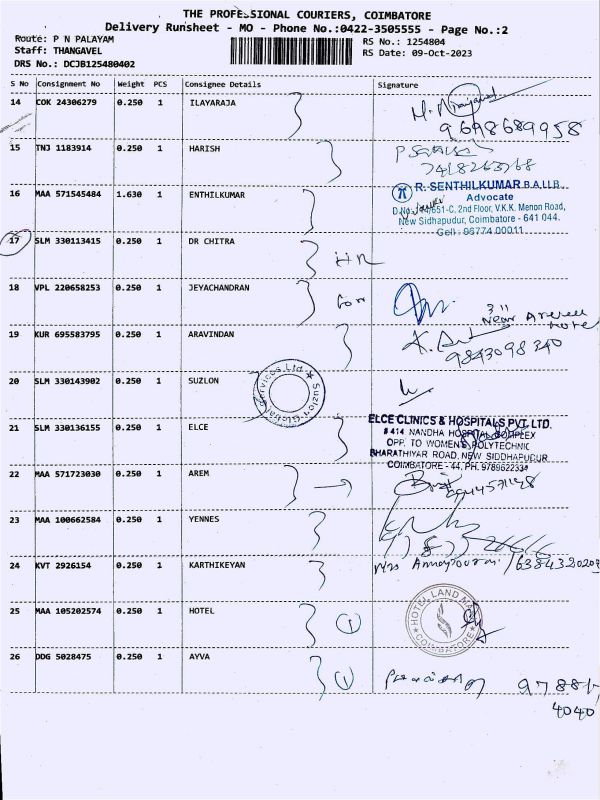 THE PROFESSIONAL COURIERS, COIMBATORE
Delivery Runsheet - MO - Phone No.:0422-3505555 - Page No.:2
Route: P N PALAYAM
RS No.: 1254804
Staff: THANGAVEL
RS Date: 09-Oct-2023
DRS No.: DCJB125480402
S No Consignment No Weight PCS Consignee Details Signature
14 COK 24306279 0.250 1 ILAYARAJA
9698689958
15 TNJ 1183914 0.250 1 HARISH
16 MAA 571545484 1.630 1 ENTHILKUMAR
R. SENTHILKUMAR B.A.LLB.
Advocate
2nd Floor, V.K.K. Menon Road,
New Sidhapudur, Coimbatore - 641 044.
Cell: 98774 00011
17 SLM 330113415 0.250 1 DR CHITRA
18 VPL 220658253 0.250 1 JEYACHANDRAN
19 KUR 695583795 0.250 1 ARAVINDAN
9843098340
20 SLM 330143902 0.250 1 SUZLON
Suzlon Global Services Ltd
21 SLM 330136155 0.250 1 ELCE
ELCE CLINICS & HOSPITALS PVT. LTD.
# 414 NANDHA HOSPITAL COMPLEX
OPP. TO WOMENS POLYTECHNIC
BHARATHIYAR ROAD, NEW SIDDHAPUDUR
COIMBATORE - 44, PH. 9789622334
22 MAA 571723030 0.250 1 AREM
23 MAA 100662584 0.250 1 YENNES
24 KVT 2926154 0.250 1 KARTHIKEYAN
25 MAA 105202574 0.250 1 HOTEL
1
HOTEL LAND MARK
COIMBATORE
26 DDG 5028475 0.250 1 AYVA
1
4040